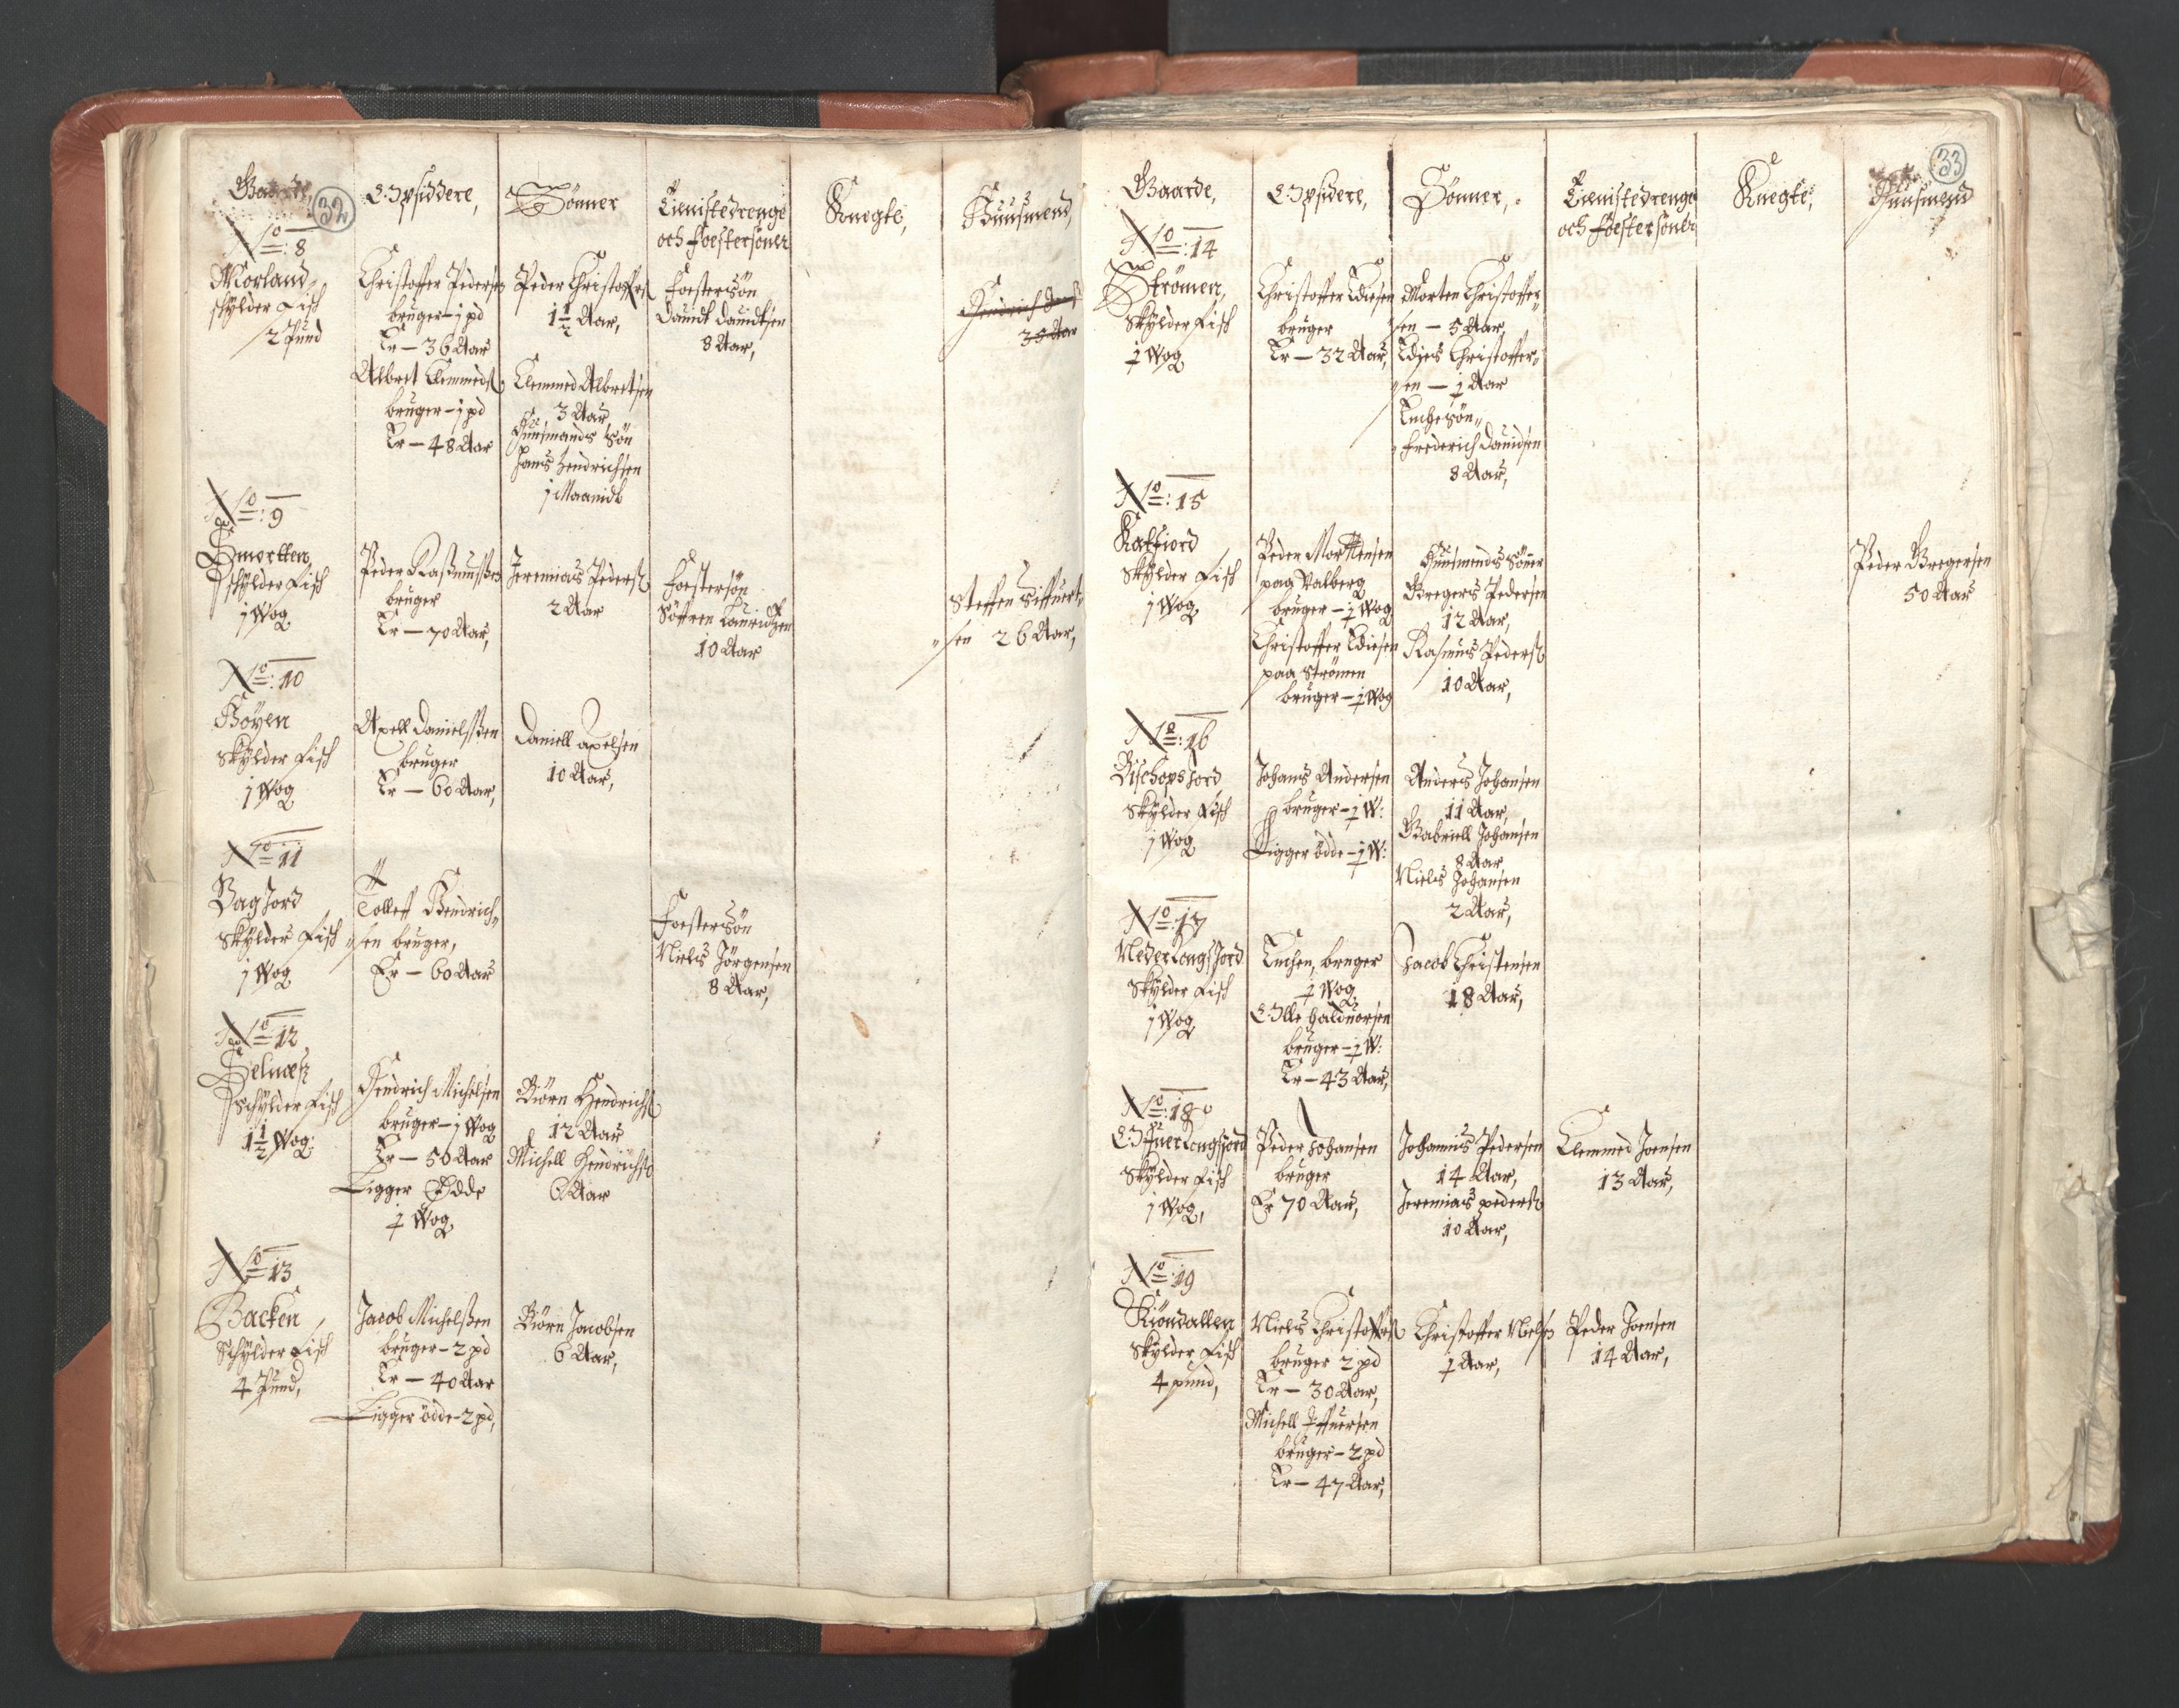 32
Gaarde,
Opsiddere,
Sönner
Tienistedrenge
och foestersöner
Knegte,
Huusmend,
No: 8
Morland
schÿlder Fisch
2 Pund
Christoffer Pedersen
bruger - 1 pd
Er - 36 Aar
Albret Clemmeds
bruger - 1 pd
Er - 48 Aar
Peder Christoffers
1 1/2 Aar,
Clemmed Albretsen
3 Aar
Huusmands Sön
Hans Hendrichsen
1 Maanidt
Foestersön
Dauidt Dauidtsen
8 Aar,
Hendrich
35 Aar
No: 9
Smortten
schÿlder Fisch
1 Wog
Peder Rasmussen
bruger
Er - 70 Aar,
Jeremias Peders
2 Aar
Foestersön
Söffren Lauridtzen
10 Aar
Steffen Siffuert
sen 26 Aar,
No: 10
Böyen
Skÿlder Fisch
1 Wog
Axell Danielssen
bruger
Er - 60 Aar,
Daniell Axelsen
10 Aar,
No: 11
Bagjord
Skÿlder Fisch
1 Wog
Tolleff Hendrich
sen bruger,
Er - 60 Aar
Foestersön
Niels Jörgensen
8 Aar,
No: 12
Selnæs
Schÿlder Fisch
1 1/2 Wog:
Hendrich Michelsen
bruger - 1 Wog
Er - 50 Aar
Ligger Ödde
1/2 Wog
Biörn Hendrichs
12 Aar
Michell Hendrichs
6 Aar
No: 13
Backen
Schÿlder Fisch
4 Pund,
Jacob Michelssen
bruger - 2 pd
Er - 40 Aar
Ligger ödde - 2 pd,
Biörn Jacobsen
6 Aar,
33
Gaarde,
Opsidere,
Sönner,
Tienistedrenge
och foestersöner
Knegte,
Huusmend
No: 14
Strömen,
Skÿlder Fisch
1/2 Wog
Christoffer Ediesen
bruger
Er - 32 Aar,
Morten Christoffer
sen - 5 Aar,
Edies Christoffer
sen - 1/2 Aar
Enchesön
Frederich Dauidsen
8 Aar,
No: 15
Katfiord
Skÿlder Fisch
1 Wog
Peder Mortensen
paa Valberg
bruger - 1/2 Wog
Christoffer Ediesen
paa Strömen
bruger - 1/2 Wog
Huusmends Söner
Gregers Pedersen
12 Aar,
Rasmus Peders
10 Aar,
Peder Gregersen
50 Aar
No: 16
Bischopsjord
Skÿlder Fisch
1 Wog
Johans Andersen
bruger - 1/2 W:
Ligger ödde - 1/2 W:
Anders Johansen
11 Aar,
Gabriell Johansen
8 Aar
Niels Johansen
2 Aar,
No: 17
Neder Longsjord
Skÿlder Fisch
1 Wog
Enchen, bruger
1/2 Wog
Olle Halduorsen
bruger - 1/2 W:
Er - 43 Aar,
Jacob Christensen
18 Aar,
No: 18
Öfuer Longsjord
Skÿlder Fisch
1 Wog,
Peder Johansen
bruger
Er 70 Aar,
Johannis Pedersen
14 Aar,
Jeremias peders
10 Aar,
Clemmed Joensen
13 Aar,
No: 19
Kiöndallen
Skÿlder Fisch
4 pund,
Niels Christoffers
bruger 2 pd
Er - 30 Aar,
Michell Iffuersen
bruger - 2 pd
Er - 47 Aar,
Christoffer Niels
1/2 Aar,
Peder Joensen
14 Aar,